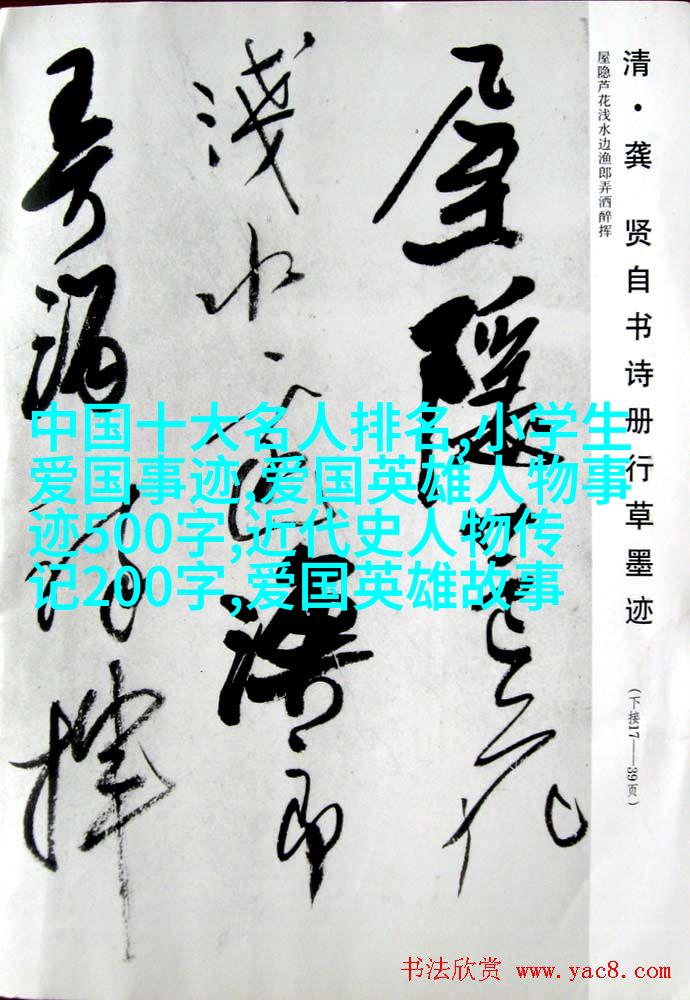 清·龚 贤自书诗册行草墨迹
(下接17——39页)
屋隐芦花浅水边渔郎弄酒醉挥
屋隐芦花
浅水边渔郎
弄酒醉挥
中国十大名人排名,小学生
爱国事迹,爱国英雄人物事
迹500字,近代史人物传
记200字,爱国英雄故事
书法欣赏 www.yac8.com